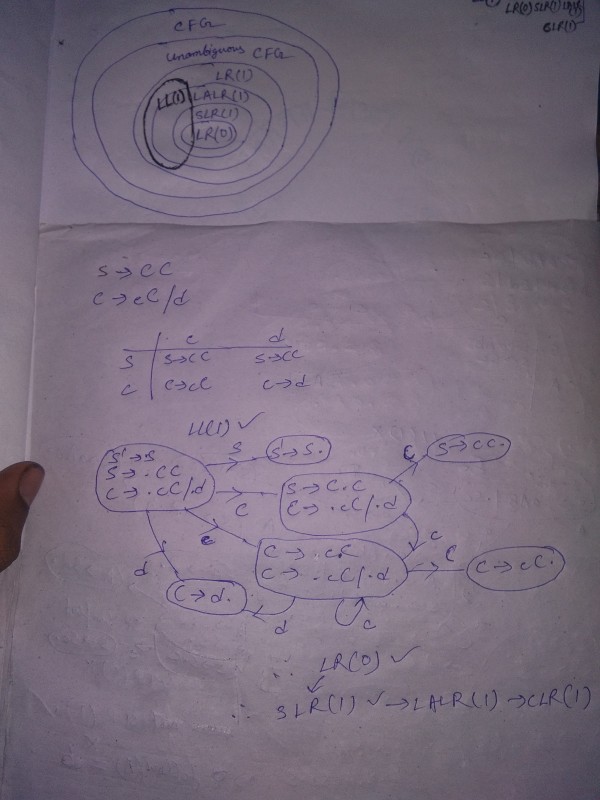 LR(0) SLR(1) LALR
CLR(1)
CFG
Unambiguous CFG
LR(1)
LL(1) LALR(1)
SLR(1)
LR(0)
S → CC
C → cC/d
c d
S S→CC S→CC
C C→cC C→d
LL(1) ✓
S' → S
S → .CC
C → .cC/.d
S
S → S.
C
S → C.C
C → .cC/.d
C
S → CC.
c
c
C → .cC
C → .cC/.d
C
C → cC.
d
C → d.
d
c
∴ LR(0) ✓
∴ SLR(1) ✓ → LALR(1) → CLR(1)